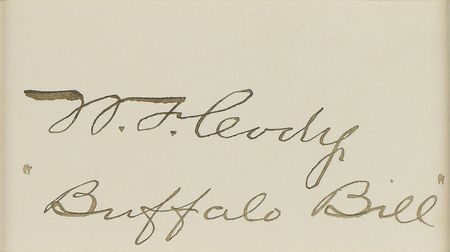 W. F. Cody,
"Buffalo Bill"